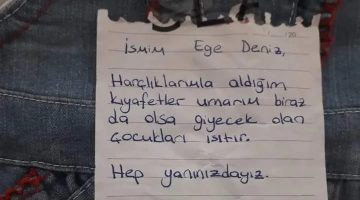 İsmim Ege Deniz,
Harçlıklarımla aldığım
kıyafetler umarım biraz
da olsa giyecek olan
çocukları ısıtır.
Hep yanınızdayız.